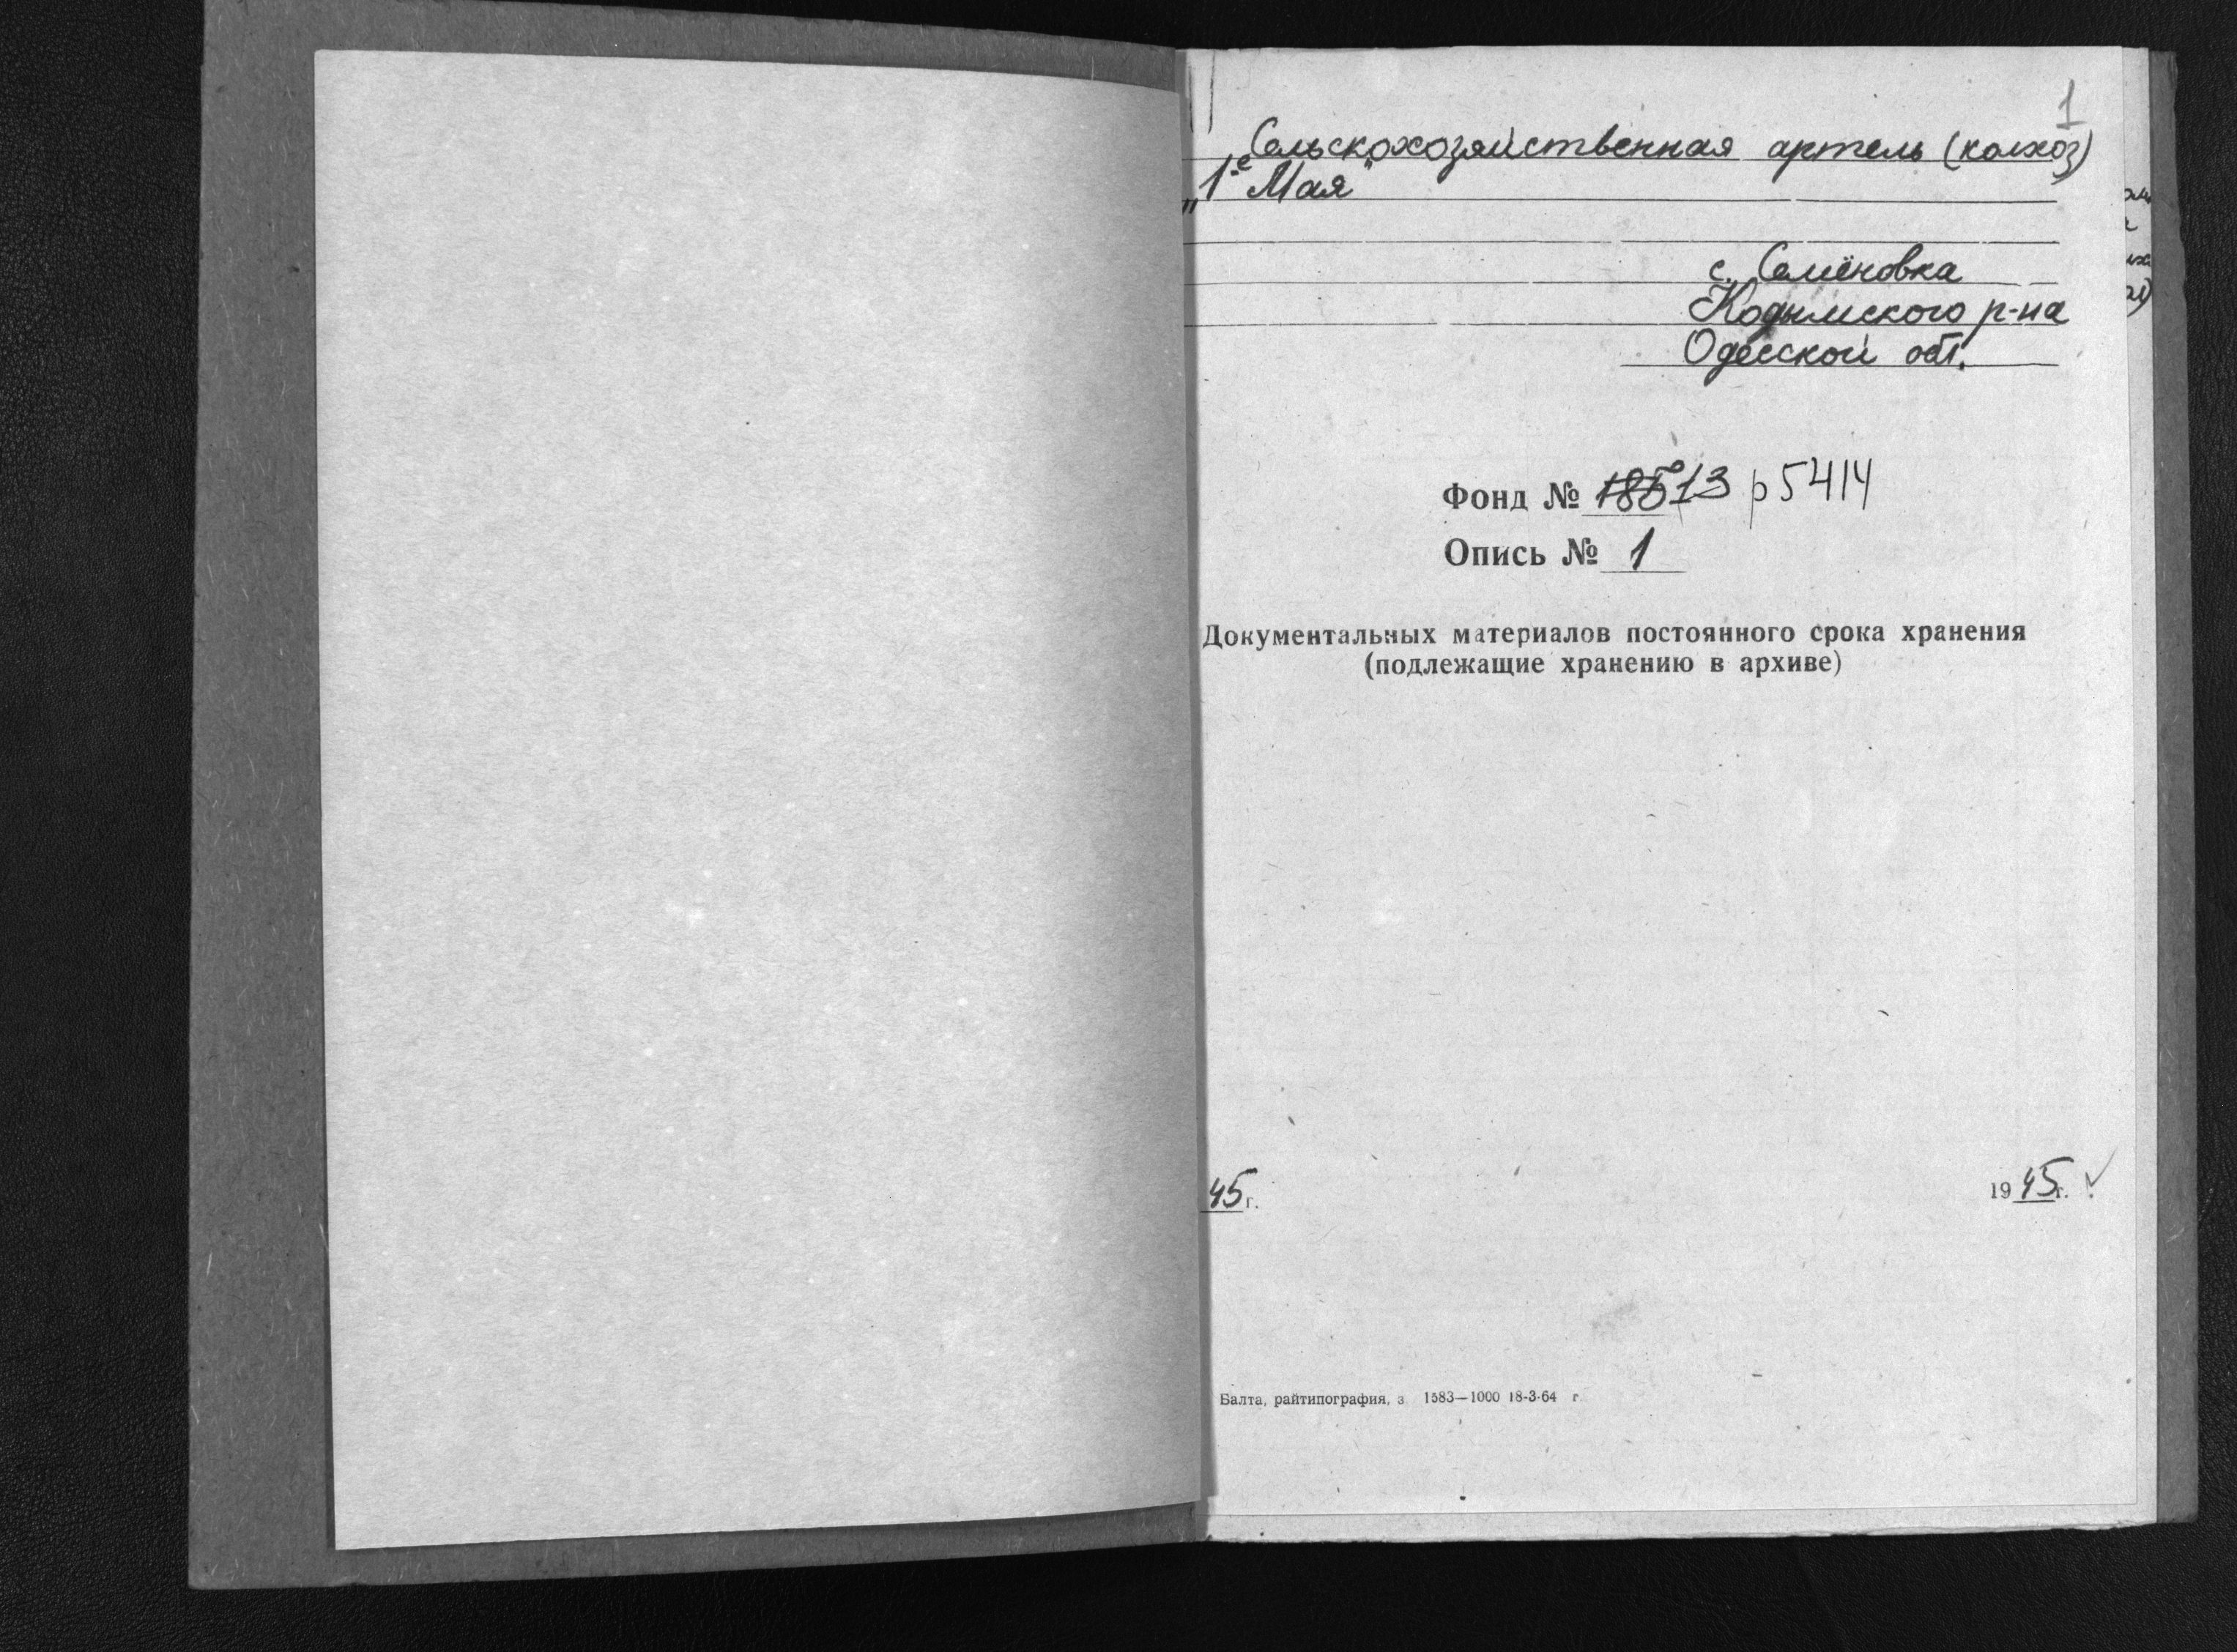 1
Сельскохозяйственная артель (колхоз)
„1-е Мая"
с. Семёновка
Кодымского р-на
Одесской обл.
Фонд № 13 р5414
Опись № 1
Документальных материалов постоянного срока хранения
(подлежащие хранению в архиве)
45 г.
1945 г.
Балта, райтипография, з 1583—1000 18-3-64 г